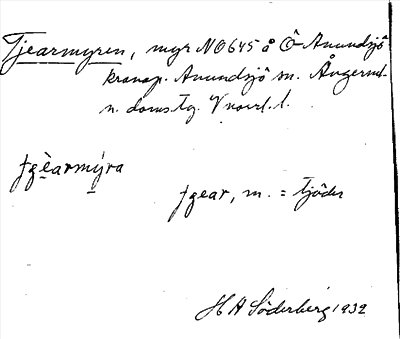 Tjearmyren, myr NO645 å Ö-Anundsjö
kronop. Anundsjö sn. Ångerml.
n. doms tg. V norrl. l.
tjęarmyra
tjear, m. = tjäder
H A Söderberg 1932